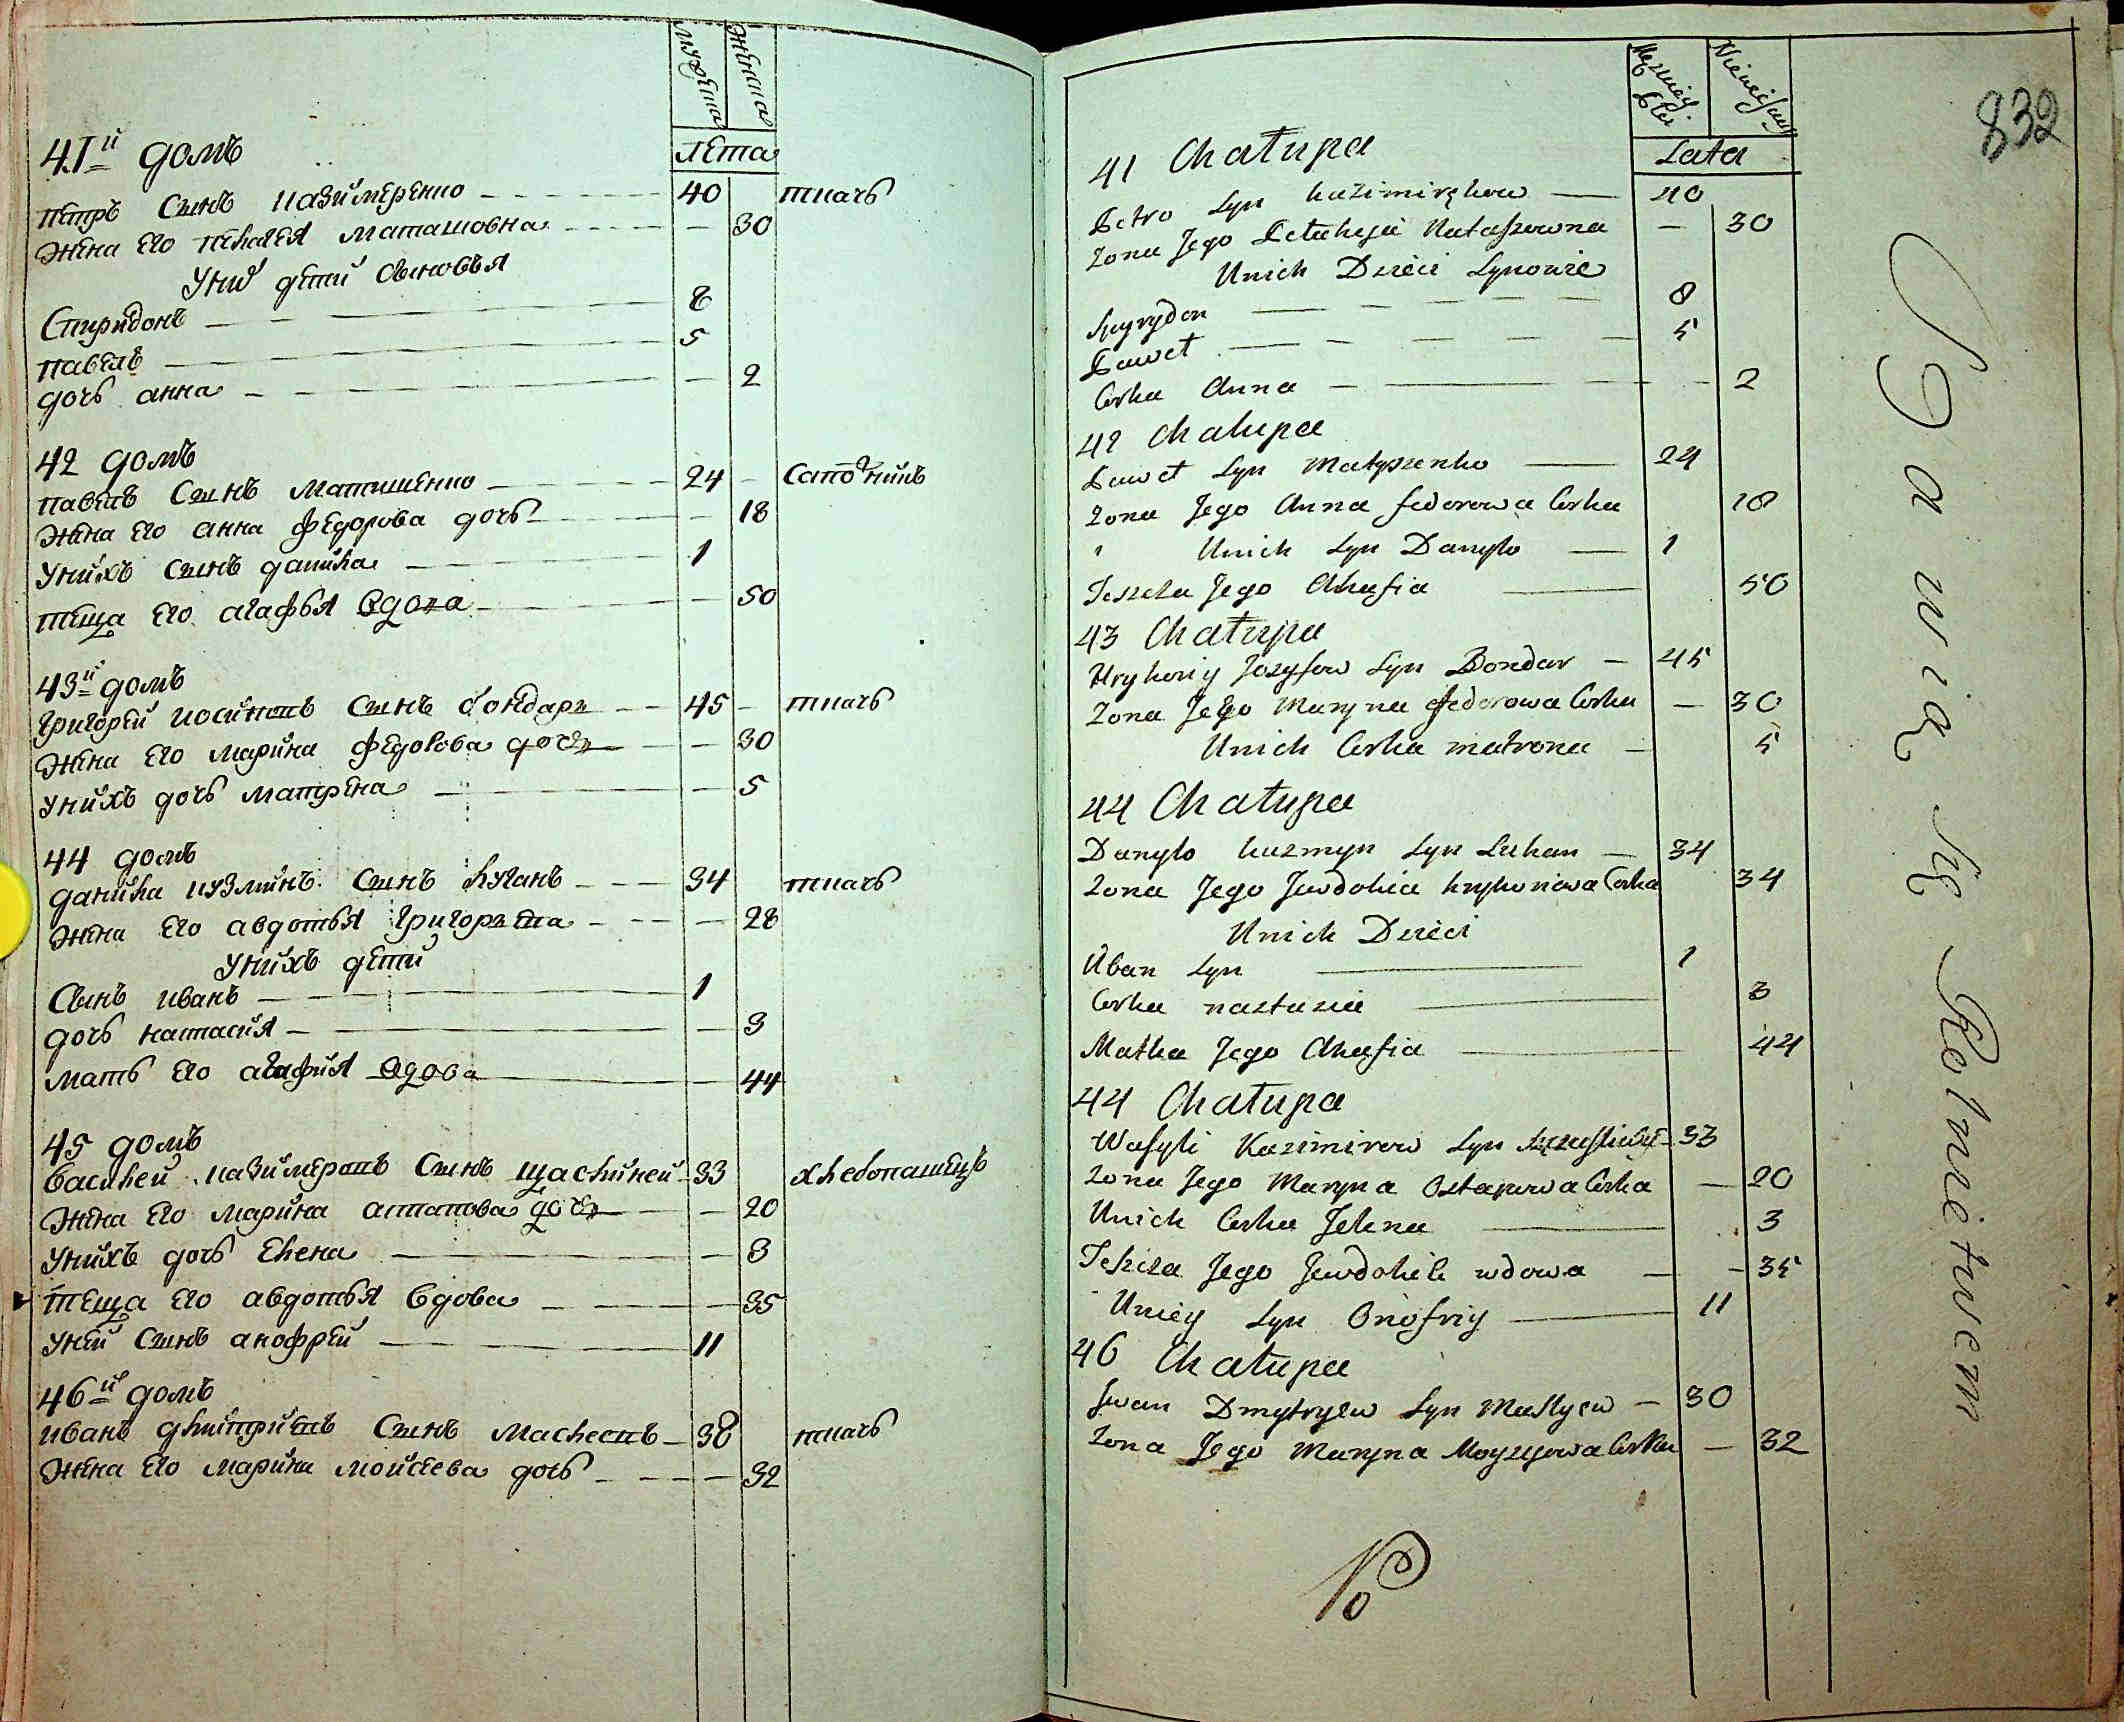 мужеска женска
лета
41й домъ
петръ сынъ казимеренко 40 ткачъ
жена его пелагея маташовна 30
У них дети сыновья
Спиридонъ 8
павелъ 5
дочь анна 2
42 домъ
павелъ сынъ матишенко 24
жена его анна федорова дочь 18
У нихъ сынъ данила 1
теща его агафья вдова 50
43й домъ
григорей иосиповъ сынъ бондаръ 45 ткачъ
жена его марина федорова дочь 30
У нихъ дочь матрена 5
44 домъ
данила кузминъ сынъ луганъ 34 ткачъ
жена его авдотья григорьева 28
У нихъ дети
Сынъ иванъ 1
дочь настасия 3
мать его агафия вдова 44
45 домъ
василей казимеровъ сынъ щасливей 33 хлебопашецъ
жена его марина астапова дочь 20
У нихъ дочь елена 3
теща его авдотья вдова 35
У ней сынъ анофрей 11
46й домъ
иванъ дмитриевъ сынъ маслеевъ 38 ткачъ
жена его марина моисеева дочь 32
832
Lata
41 Chałupa
Petro Syn Kazimirękow 40
Zona Jego Pelaheja Mataszowna 30
Unich Dzieci Synowie
Spyrydon 8
Paweł 5
Corka Anna 2
42 Chalupa
Paweł Syn Matyszenko 24
Zona Jego Anna fedorowa Corka 18
Unich Syn Danyło 1
Teszcza Jego Ahafia 50
43 Chałupa
Hryhoriy Jozyfow Syn Bondar 45
Zona Jego Maryna fedorowa Corka 30
Unich Corka matrona 5
44 Chałupa
Danyło Kuzmyn Syn Luhan 34
Zona Jego Jewdohia hryhoriowa Corka 34
Unich Dzieci
Iwan Syn 1
Corka nastazia 3
Matka Jego Ahafia 44
44 Chałupa
Wasyli Kazimirow Syn 33
Zona Jego Maryna Ostapowa Corka 20
Unich Corka Jelena 3
Teszcza Jego Jewdohia wdowa 35
Uniey Syn Onofriy 11
46 Chałupa
Iwan Dmytryew Syn Maslyew 30
Zona Jego Maryna Moyzejowa Corka 32